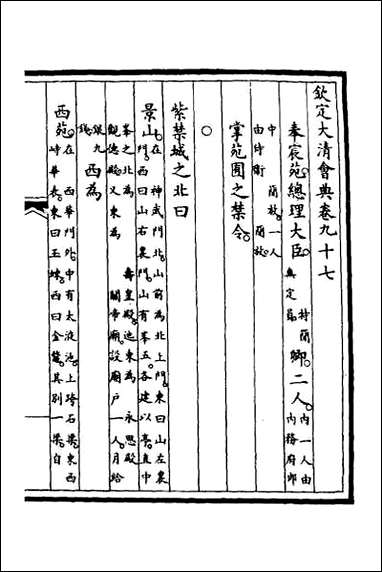 欽定大清會典卷九十七
奉宸苑總理大臣特簡無定員卿二人內一人由內務府郎
中 簡放一人由侍衛 簡放
掌苑囿之禁令
○
紫禁城之北曰
景山在 神武門北山前為北上門東曰山左裏門西曰山右裏門山有峯五各建以亭直中
峯之北為 壽皇殿迤東為 永思殿觀德殿又東為 關帝廟設廟戶一人月給
銀九錢西為
西苑在 西華門外中有太液池上跨石梁東西峙華表東曰玉蝀西曰金鼇其別一梁自